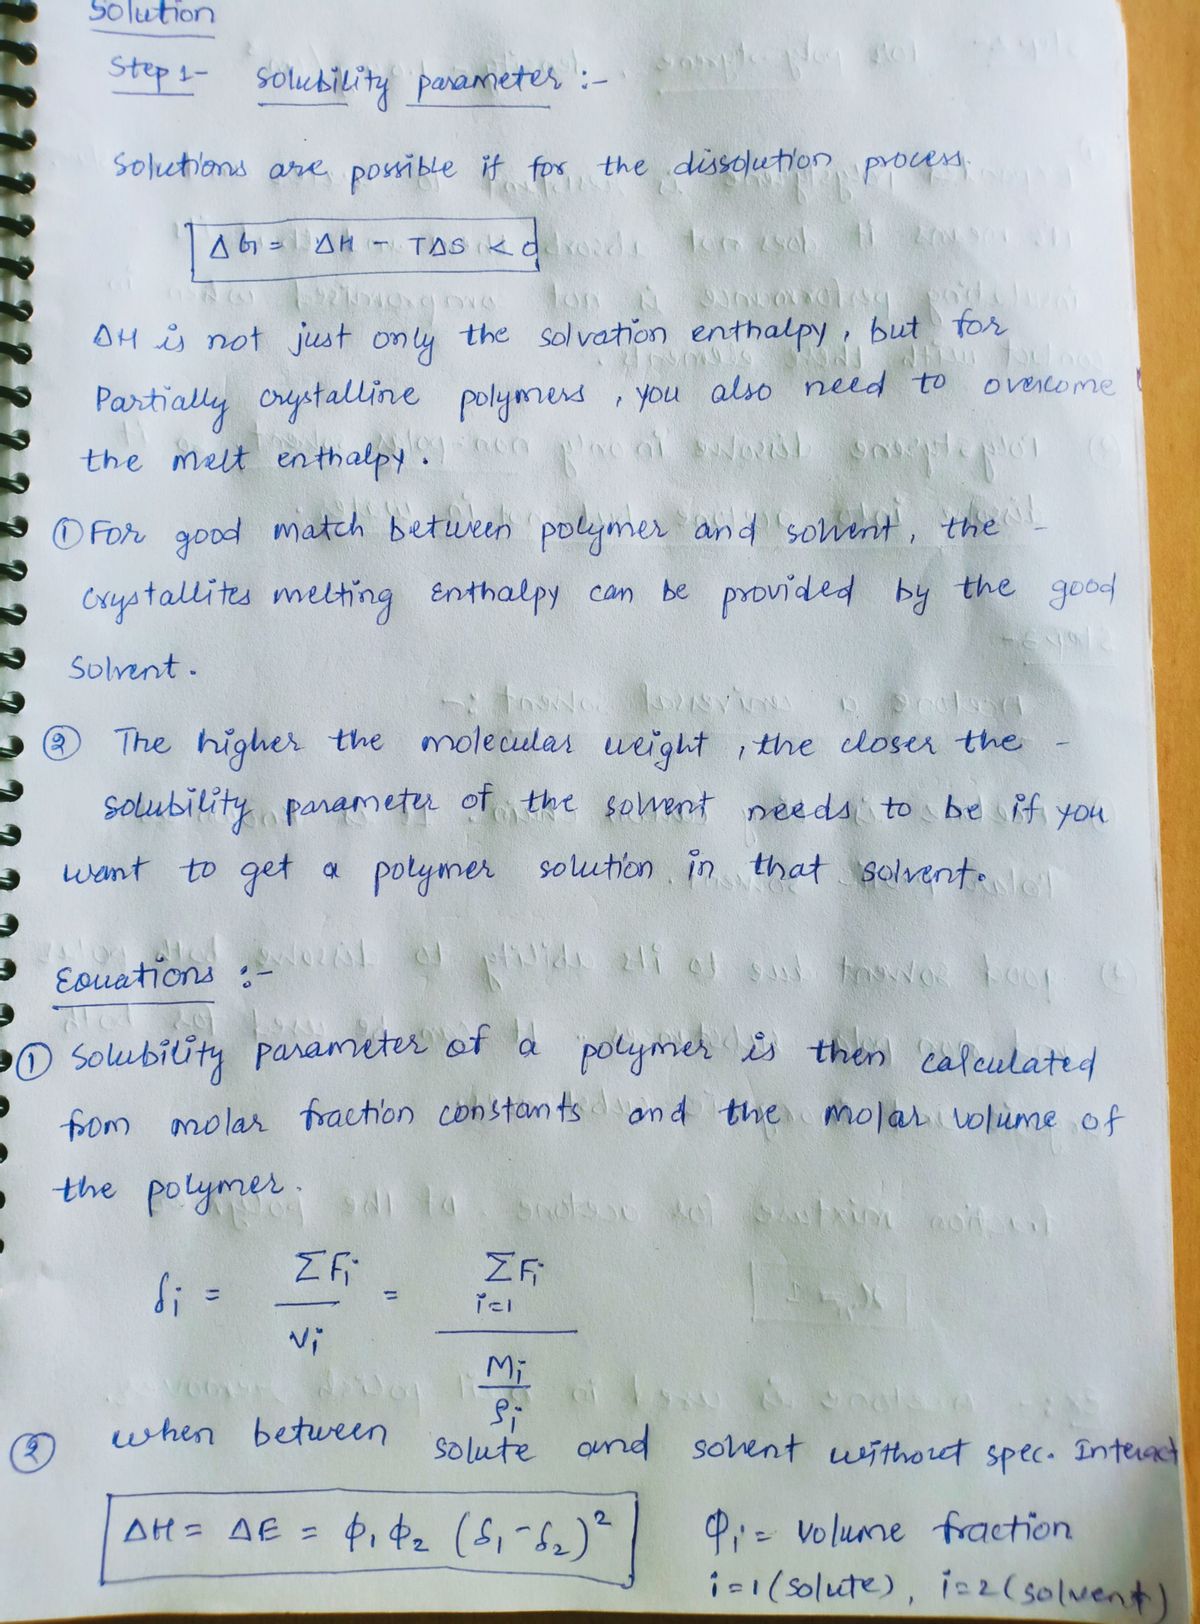 Solution
Step 1- Solubility parameter :-
Solutions are possible if for the dissolution process.
ΔG = ΔH - TΔS < 0
ΔH is not just only the solvation enthalpy, but for
Partially crystalline polymers, you also need to overcome
the melt enthalpy.
① For good match between polymer and solvent, the -
crystallites melting Enthalpy can be provided by the good
Solvent.
② The higher the molecular weight, the closer the -
solubility parameter of the solvent needs to be if you
want to get a polymer solution in that solvent.
Equations :-
① Solubility parameter of a polymer is then calculated
from molar fraction constants and the molar volume of
the polymer.
δi = ΣFi / Vi = Σ i=1 Fi / (Mi / ρi)
② when between solute and solvent without spec. Interact
ΔH = ΔE = φ1 φ2 (δ1 - δ2)² φi = volume fraction
i=1 (solute), i=2 (solvent)